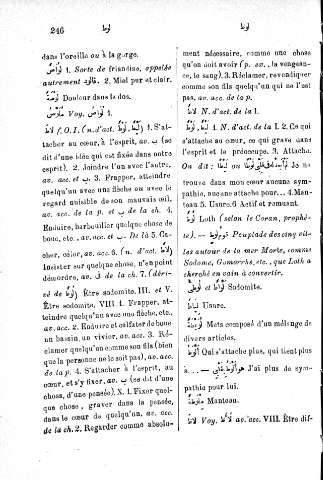 246
لوط
لوط
dans l'oreille ou à la gorge.
لَوَّاصْ 1. Sorte de friandise, appelée
autrement فالوذ. 2. Miel pur et clair.
Douleur dans le dos.
Voy. مُلَاوَصْ.
لَاطَ f. O. I. (n. d'act. لَوْط, لَيْط) 1. S'at-
tacher au cœur, à l'esprit, av. ب (se
dit d'une idée qui est fixée dans notre
esprit). 2. Joindre l'un avec l'autre,
av. acc. et ب. 3. Frapper, atteindre
quelqu'un avec une flèche ou avec le
regard nuisible de son mauvais œil,
av. acc. de la p. et ب de la ch. 4.
Enduire, barbouiller quelque chose de
boue, etc., av. acc. et ب. De là 5. Ca-
cher, celer, av. acc. 6. (n. d'act. لَاط)
Insister sur quelque chose, n'en point
démordre, av. de la ch. 7. (déri-
vé de لوط) Être sodomite. III. et V.
Être sodomite. VIII. 1. Frapper, at-
teindre quelqu'un avec une flèche, etc.,
av. acc. 2. Enduire et calfater de boue
un bassin, un vivier, av. acc. 3. Ré-
clamer quelqu'un comme son fils (bien
que la personne ne le soit pas), av. acc.
de la p. 4. S'attacher à l'esprit, au
cœur, et s'y fixer, av. ب (se dit d'une
chose, d'une pensée). X. 1. Fixer quel-
que chose, graver dans la pensée,
dans le cœur de quelqu'un, av. acc.
de la ch. 2. Regarder comme absolu-
ment nécessaire, comme une chose
qu'on doit avoir (p. ex., la vengean-
ce, le sang). 3. Réclamer, revendiquer
comme son fils quelqu'un qui ne l'est
pas, av. acc. de la p.
لَاطٌ N. d'act. de la I.
لَوْط, لَيْط 1. N. d'act. de la I. 2. Ce qui
s'attache au cœur, ce qui grave dans
l'esprit et le préoccupe. 3. Attaché.
On dit : Je ne
trouve dans mon cœur aucune sym-
pathie, aucune attache pour... 4. Man-
teau. 5. Usure. 6. Actif et remuant.
لُوط Loth (selon le Coran, prophè-
te). — قوم لوط Peuplade des cinq vil-
les autour de la mer Morte, comme
Sodome, Gomorrhe, etc., que Loth a
cherché en vain à convertir.
لُوطِيّ et لَوَّاط Sodomite.
لِيَاط Usure.
لَوِيطَة Mets composé d'un mélange de
divers articles.
أَلْوَط Qui s'attache plus, qui tient plus
à... — هو أَلْوَط بِقَلْبِي J'ai plus de sym-
pathie pour lui.
مِلْوَطَة Manteau.
لَاطَة Voy. لَاط av. acc. VIII. Être dif-